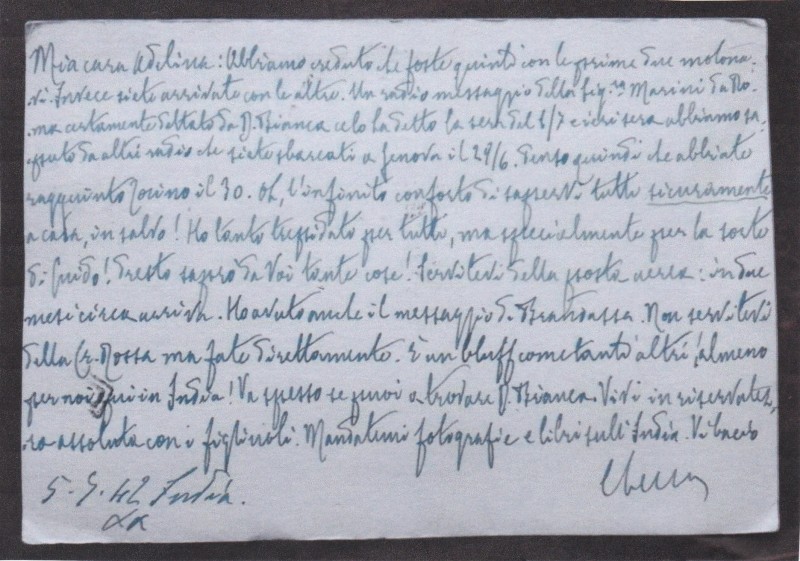 Mia cara Adelina: Abbiamo creduto che foste quindi con le prime due motona-
vi. Invece siete arrivate con le altre. Un radio messaggio della Sig.ra Marini da Ro-
ma certamente dettato da D. Bianca ce lo ha detto la sera del 1/7 e ieri sera abbiamo sa-
puto da altri radio che siete sbarcati a Genova il 29/6. Penso quindi che abbiate
raggiunto il 30. Oh, l'infinito conforto di sapervi tutti sicuramente
a casa, in salvo! Ho tanto trepidato per tutti, ma specialmente per la sorte
di Guido! Presto saprò da voi tante cose! Servitevi della posta aerea: in due
mesi circa arriva. Ho avuto anche il messaggio di. Non servitevi
della Cr. Rossa ma fate direttamente. È un bluff come tanti altri, almeno
per noi qui in India! Va spesso se puoi a trovare D. Bianca. Vivi in riservatez-
za assoluta con i figliuoli. Mandatemi fotografie e libri sull'India. Vi bacio
5-7-42 India.